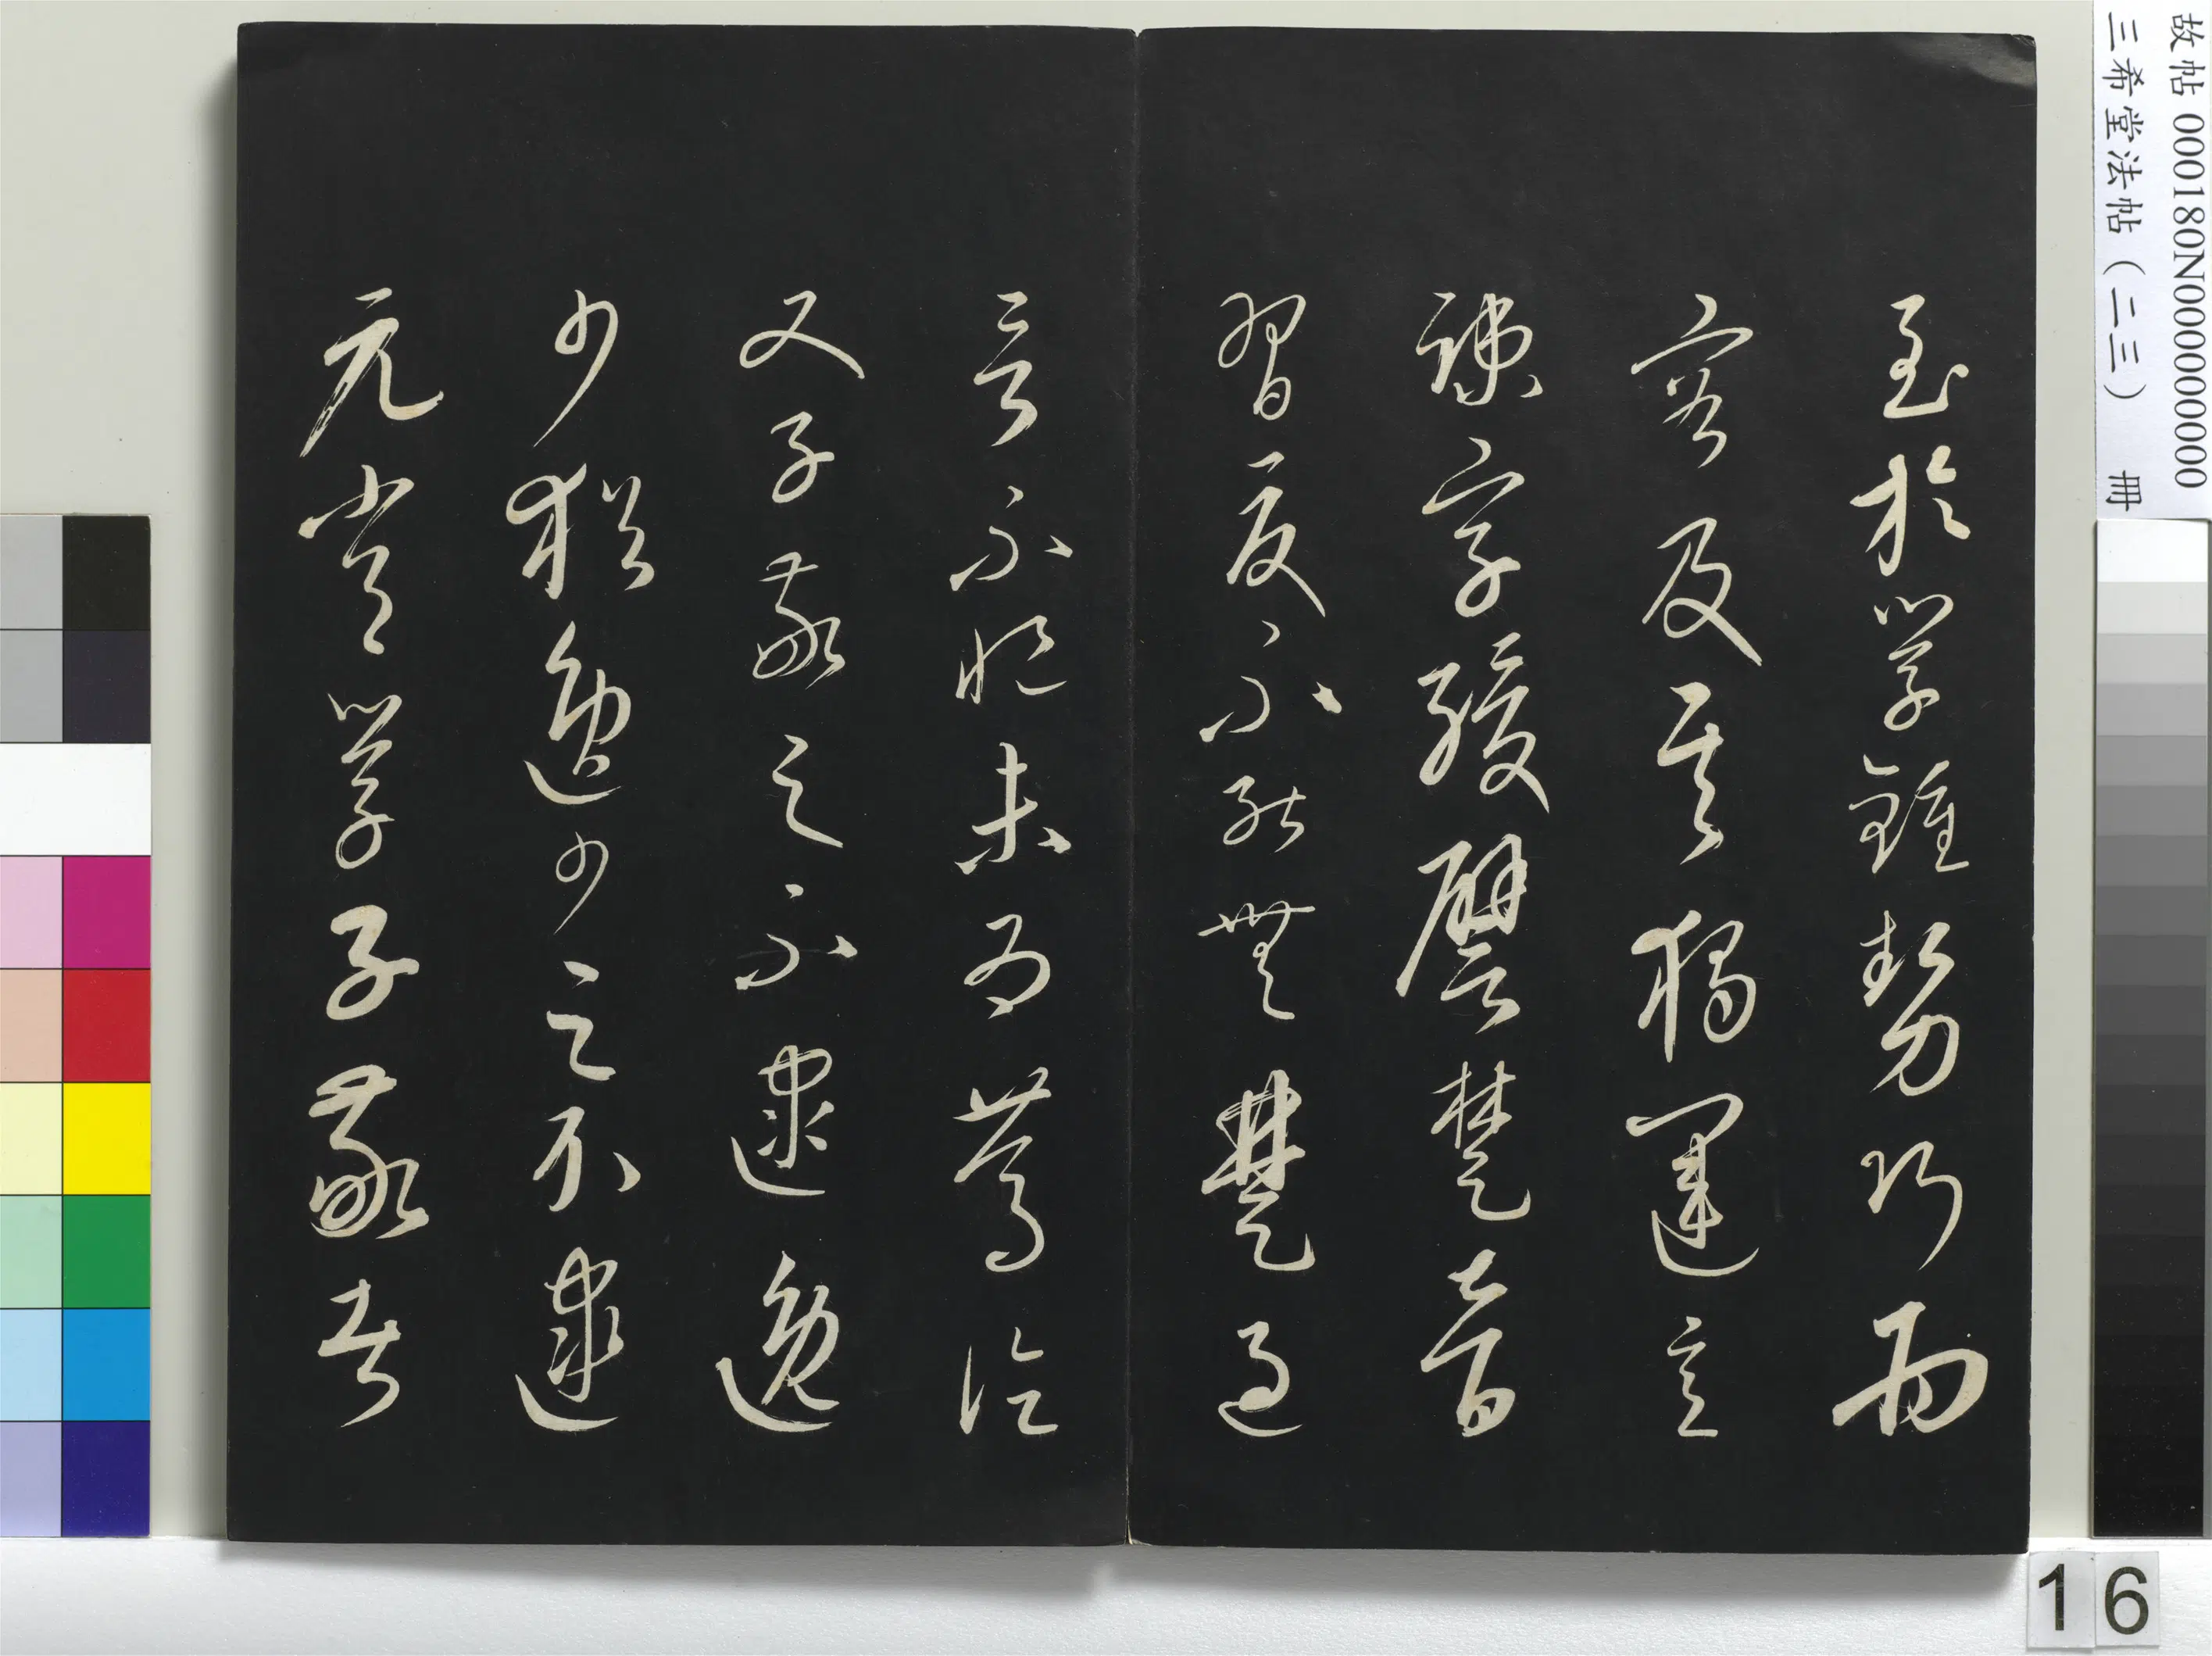 故帖 000180N000000000
三希堂法帖（二三） 冊
至於學鍾勢巧而
密及其獨運意
疎字緩譬楚音
習夏不能無楚過
言不悒未為篤論
又子敬之不逮逸
少猶逸少之不逮
元常學子敬者
16